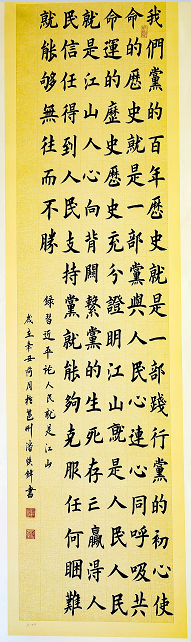 我們黨的百年歷史就是一部踐行黨的初心使
命的歷史就是一部黨與人民心連心同呼吸共
命運的歷史歷史充分證明江山就是人民人民
就是江山人心向背關繫黨的生死存亡贏得人
民信任得到人民支持黨就能夠克服任何睏難
就能够無往而不勝
錄習近平論人民就是江山
歲在辛丑荷月於邕州潘鋒書